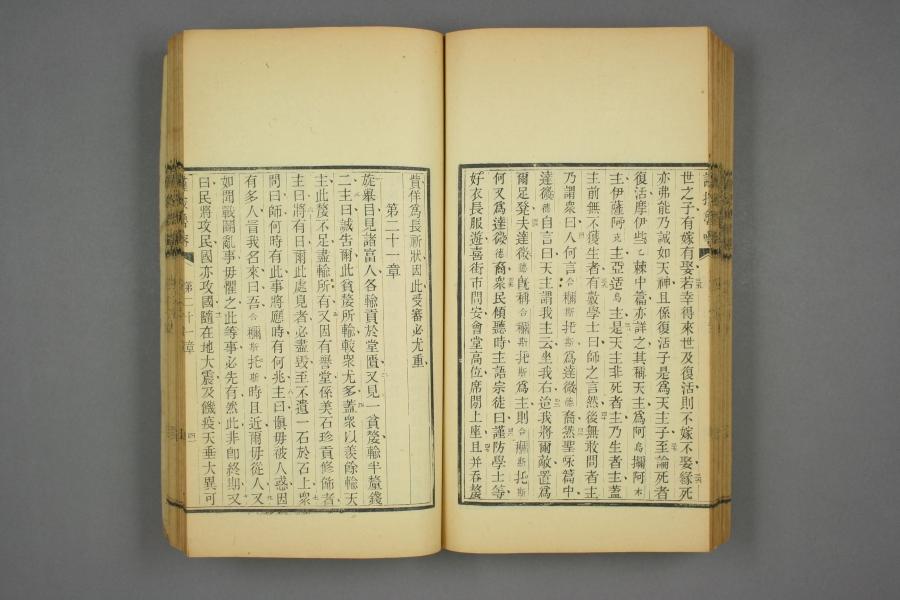 世之子有嫁有娶若幸得來世及復活則不嫁不娶緣死
亦弗能乃誠如天神且係復活子是爲天主子至論死者
復活摩伊些棘中篇亦詳之其稱天主爲阿烏攔阿木
主伊薩阿克主亞适烏主是天主非死者主乃生者主蓋
主前無不獲生者有數學士曰師之言然後無敢問者主
乃謂衆曰人何言合襧斯托斯爲達微德裔然聖咏篇中
達微德自言曰天主謂我主云坐我右迨我將爾敵置爲
爾足凳夫達微德旣稱合襧斯托斯爲主則合襧斯托斯
何又爲達微德裔衆民傾聽時主語宗徒曰謹防學士等
好衣長服遊喜街市問安會堂高位席間上座且并吞嫠
貲佯爲長祈狀因此受審必尤重
第二十一章
旋舉目見諸富人各輸貢於堂匱又見一貧嫠輸半釐錢
二主曰誠吿爾此貧嫠所輸較衆尤多蓋衆以羨餘輸天
主此嫠不足盡輸所有又因有譽堂係美石珍貢修飾者
主曰將有日爾此處見者必盡毀至不遺一石於石上衆
問曰師何時有此事將應時有何兆主曰愼毋被人惑因
有多人冒我名來曰吾合襧斯托斯時且近爾毋從人又
如聞戰鬭亂事毋懼之此等事必先有然此非卽終期又
曰民將攻民國亦攻國隨在地大震及饑疫天垂大異可
第二十一章